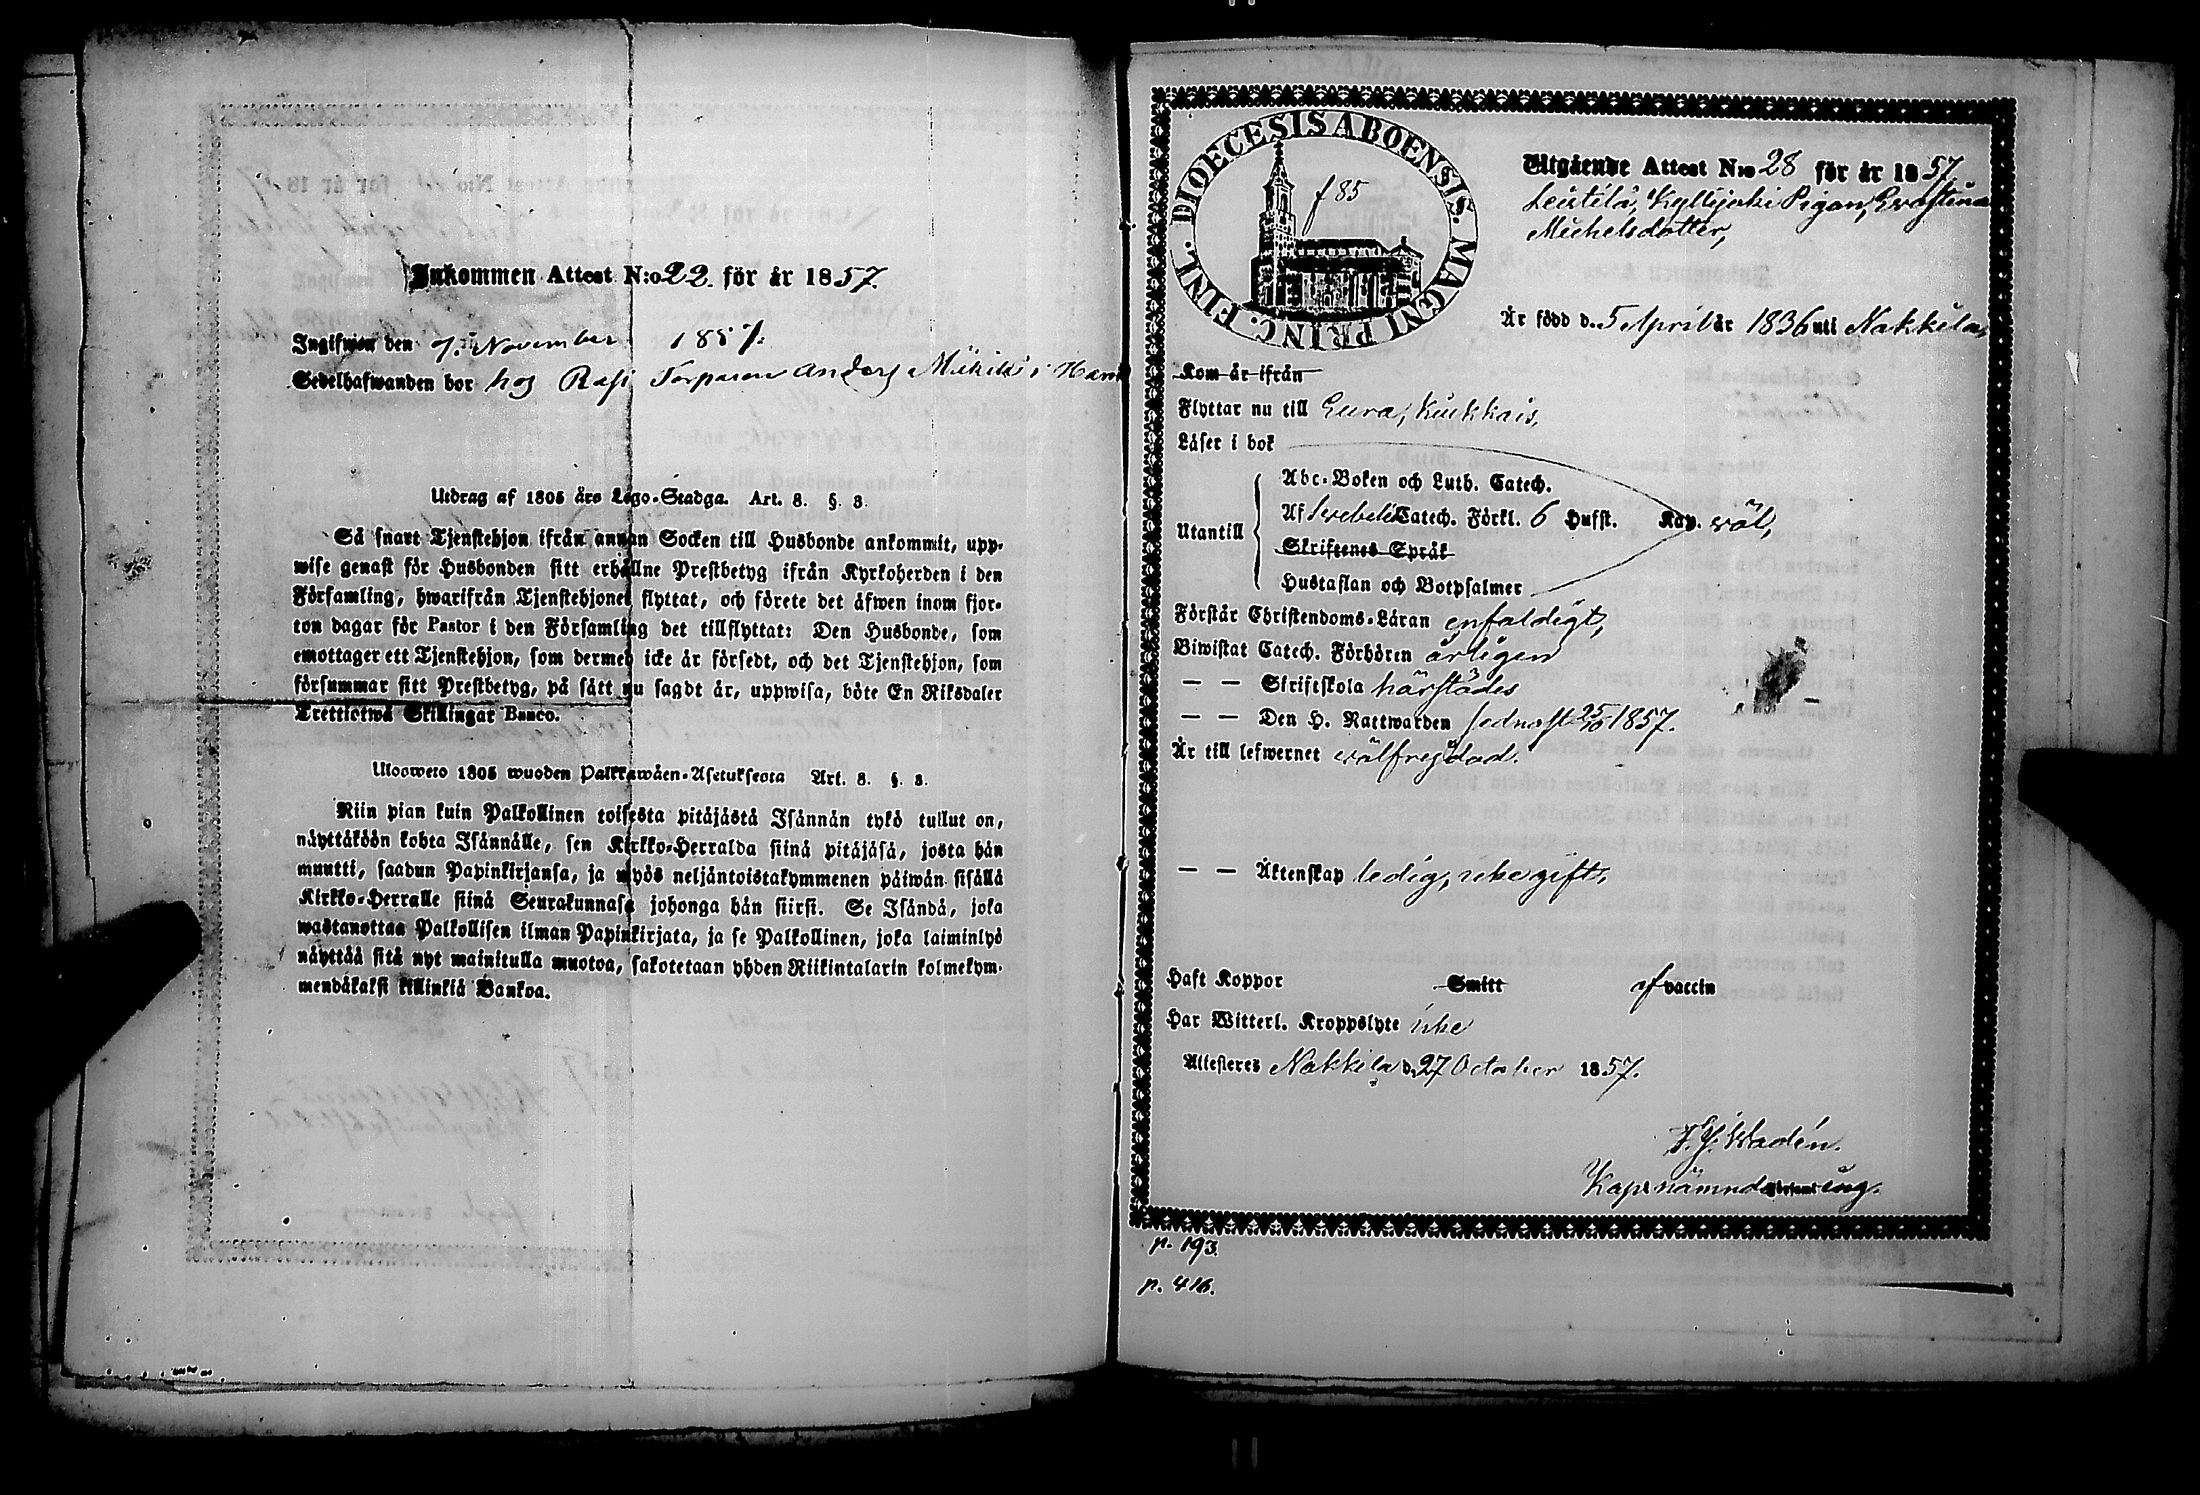 Inkommen Attest N:o 22. för år 1857.
Ingifwen den 7. November 1857.
Sedelhafwanden bor hos Rasi Torparen Anders
Utdrag af 1805 års Lego-Stadga. Art. 8. §. 3.
Så snart Tjenstehjon ifrån annan Socken till Husbonde ankommit, upp-
wise genast för Husbonden sitt erhållne Prestbetyg ifrån Kyrkoherden i den
Församling, hwarifrån Tjenstehjonet flyttat, och förete det äfwen inom fjor-
ton dagar för Pastor i den Församling det tillflyttat: Den Husbonde, som
emottager ett Tjenstehjon, som dermed icke är försedt, och det Tjenstehjon, som
försummar sitt Prestbetyg, på sätt nu sagdt är, uppwisa, böte En Riksdaler
Trettiotwå Skillingar Banco.
Ulosweto 1805 wuoden Palkkawäen-Asetuksesta Art. 8. §. 3.
Niin pian kuin Palkollinen toisesta pitäjästä Isännän tykö tullut on,
näyttäköön kohta Isännälle, sen Kirkko-Herralda siinä pitäjäsä, josta hän
muutti, saadun Papinkirjansa, ja myös neljäntoistakymmenen päiwän sisällä
Kirkko-Herralle siinä Seurakunnasa johonga hän siirsi. Se Isändä, joka
wastanottaa Palkollisen ilman Papinkirjata, ja se Palkollinen, joka laiminlyö
näyttää sitä nyt mainitulla muotoa, sakotetaan yhden Riikintalarin kolmekym-
mendäkaksi killinkiä Bankoa.
DIOECESIS ABOENSIS. MAGNI PRINC. FINL.
f 85
Utgående Attest N:o 28 för år 1857.
Leistilä, Kyllijoki Pigan, Evastina
Michelsdotter,
Är född d. 5 April år 1836 uti Nakkila,
Kom år ifrån
Flyttar nu till Eura, Kukkais,
Läser i bok
Utantill
Abc-Boken och Luth. Catech.
Af Svebelii Catech. Förkl. 6 Hufst. Kap. wäl,
Skriftenes Språk
Hustaflan och Botpsalmer
Förstår Christendoms-Läran enfaldigt,
Biwistat Catech. Förhören årligen
— — Skriftskola härstädes
— — Den H. Nattwarden sednast 25/10 1857.
Är till lefwernet wälfregdad.
— — Äktenskap ledig, icke gift,
Haft Koppor Smitt af vaccin
Har Witterl. Kroppslyte icke
Attesteras Nakkila d. 27 October 1857.
Wadén.
Kapnämndaförsaml ing.
p. 193.
p. 416.